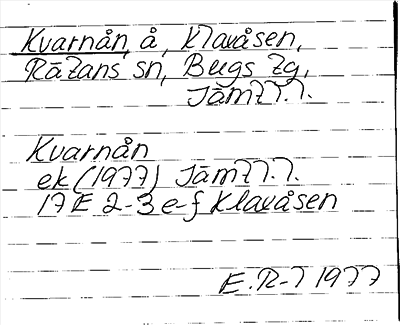 Kvarnån, å, Klavåsen,
Rätans sn, Bergs tg,
Jämtl.
Kvarnån
ek (1977) Jämtl.
17E 2-3 e-f Klavåsen
E.R-7 1977